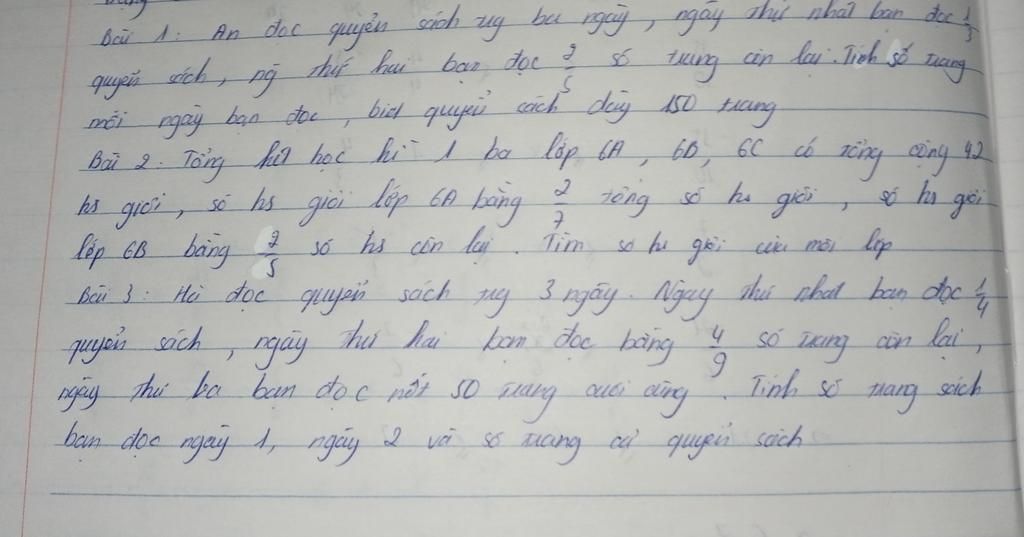 Bài 1: An đọc quyển sách trg ba ngày, ngày thứ nhất bạn đọc 1/3
quyển sách, ng thứ hai bạn đọc 2/5 số trang còn lại. Tính số trang
mỗi ngày bạn đọc, biết quyển sách dày 150 trang
Bài 2: Tổng kết học kì 1 ba lớp 6A, 6B, 6C có tổng cộng 42
hs giỏi, số hs giỏi lớp 6A bằng 2/7 tổng số hs giỏi, số hs giỏi
lớp 6B bằng 2/5 số hs còn lại. Tìm số hs giỏi của mỗi lớp
Bài 3: Hà đọc quyển sách trg 3 ngày. Ngày thứ nhất bạn đọc 1/4
quyển sách, ngày thứ hai bạn đọc bằng 4/9 số trang còn lại,
ngày thứ ba bạn đọc nốt 50 trang cuối cùng. Tính số trang sách
bạn đọc ngày 1, ngày 2 và số trang cả quyển sách